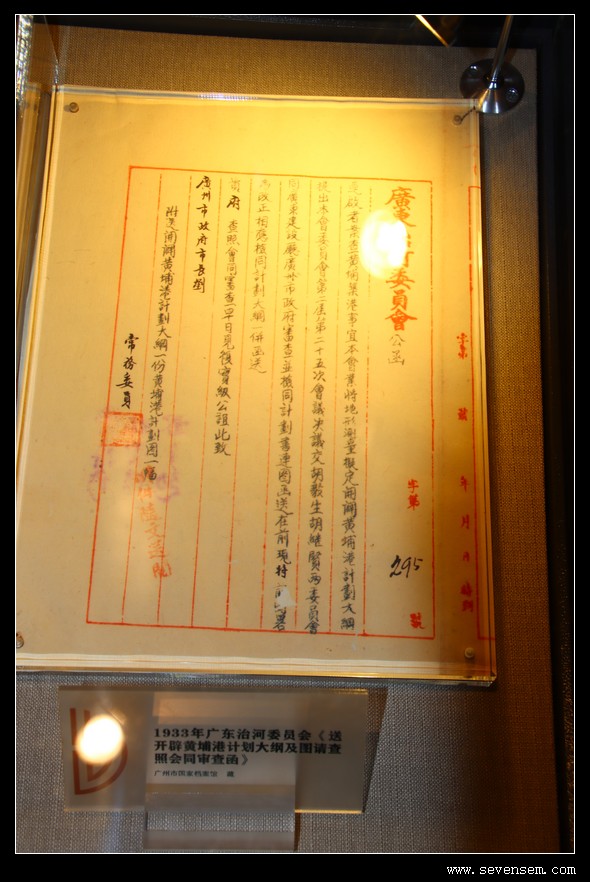 號 年 月 日
廣東治河委員會公函 字第 295 號
逕啟者案查黃埔築港事宜本會業將地形測量擬定開闢黃埔港計劃大綱
提出本會委員會第二屆第二十五次會議決議交胡毅生胡繼賢兩委員會
同廣東建設廳廣州市政府審查並檢同計劃書連圖函送在前現特
為改正相應檢同計劃大綱一併函送
貴府查照會同審查早日見復實紉公誼此致
廣州市政府市長劉
附送開闢黃埔港計劃大綱一份黃埔港計劃圖一幅
常務委員
1933年广东治河委员会《送
开辟黄埔港计划大纲及图请查
照会同审查函》
广州市国家档案馆 藏
www.sevensem.com